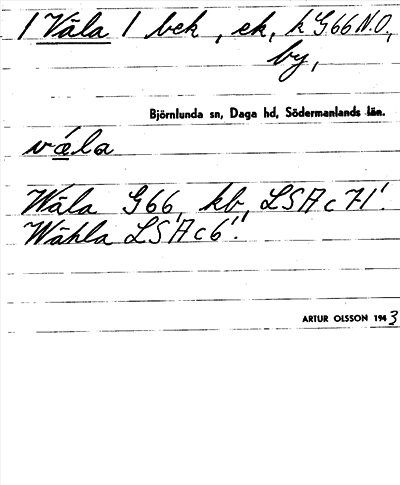 / Väla / bek, ek, k G66 N.O.,
by,
Björnlunda sn, Daga hd, Södermanlands län.
vǽla
Wäla G66, kb, LSA c 71'.
Wähla LSA c 6'.
ARTUR OLSSON 1943